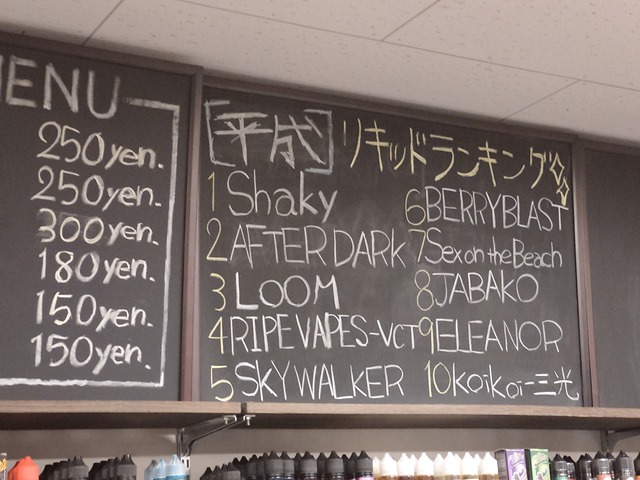 MENU
250yen.
250yen.
300yen.
180yen.
150yen.
150yen.
[平成] リキッドランキング
1 Shaky
2 AFTER DARK
3 LOOM
4 RIPE VAPES-VCT
5 SKYWALKER
6 BERRYBLAST
7 Sex on the Beach
8 JABAKO
9 ELEANOR
10 Koikoi-三光